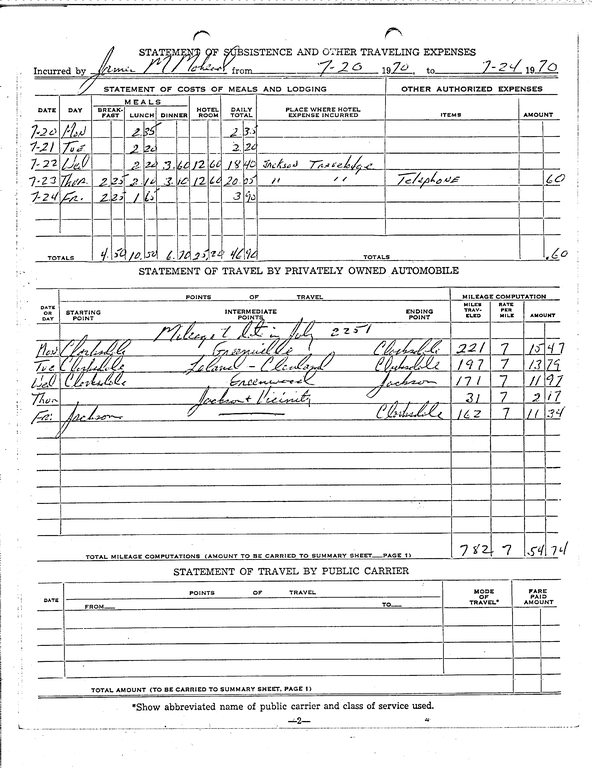 STATEMENT OF SUBSISTENCE AND OTHER TRAVELING EXPENSES
Incurred by M from 7-20 1970, to 7-24 1970
STATEMENT OF COSTS OF MEALS AND LODGING OTHER AUTHORIZED EXPENSES
DATE DAY MEALS BREAK-FAST LUNCH DINNER HOTEL ROOM DAILY TOTAL PLACE WHERE HOTEL EXPENSE INCURRED ITEMS AMOUNT
7-20 Mon 2 35 2 35
7-21 Tue 2 20 2 20
7-22 Wed 2 20 3 60 12 60 18 40 Jackson Travelodge
7-23 Thur. 2 25 2 10 3 10 12 60 20 05 " " Telephone 60
7-24 Fr. 2 25 1 65 3 90
TOTALS 4 50 10 50 6 70 25 20 46 90 TOTALS .60
STATEMENT OF TRAVEL BY PRIVATELY OWNED AUTOMOBILE
DATE OR DAY POINTS OF TRAVEL MILEAGE COMPUTATION
STARTING POINT INTERMEDIATE POINTS ENDING POINT MILES TRAV-ELED RATE PER MILE AMOUNT
Mileage in July 2251
Mon Clarksdale Greenville Clarksdale 221 7 15 47
Tue Clarksdale Leland - Cleveland Clarksdale 197 7 13 79
Wed Clarksdale Greenwood Jackson 171 7 11 97
Thur Jackson & Vicinity 31 7 2 17
Fr. Jackson Clarksdale 162 7 11 34
TOTAL MILEAGE COMPUTATIONS (AMOUNT TO BE CARRIED TO SUMMARY SHEET—PAGE 1) 782 7 54 74
STATEMENT OF TRAVEL BY PUBLIC CARRIER
DATE POINTS OF TRAVEL MODE OF TRAVEL* FARE PAID AMOUNT
FROM TO
TOTAL AMOUNT (TO BE CARRIED TO SUMMARY SHEET, PAGE 1)
*Show abbreviated name of public carrier and class of service used.
—2—